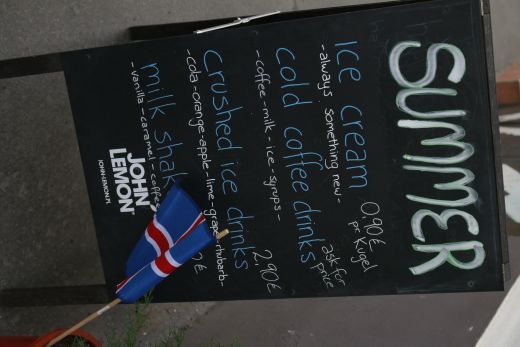 SUMMER
Ice cream 0.90€
-always something new- pr Kugel
cold coffee drinks ask for
-coffee-milk-ice-syrups- price
crushed ice drinks 2.90€
-cola-orange-apple-lime-grape-rhubarb-
milk
-vanilla-caramel-coffee
JOHN
LEMON
JOHN-LEMON.PL